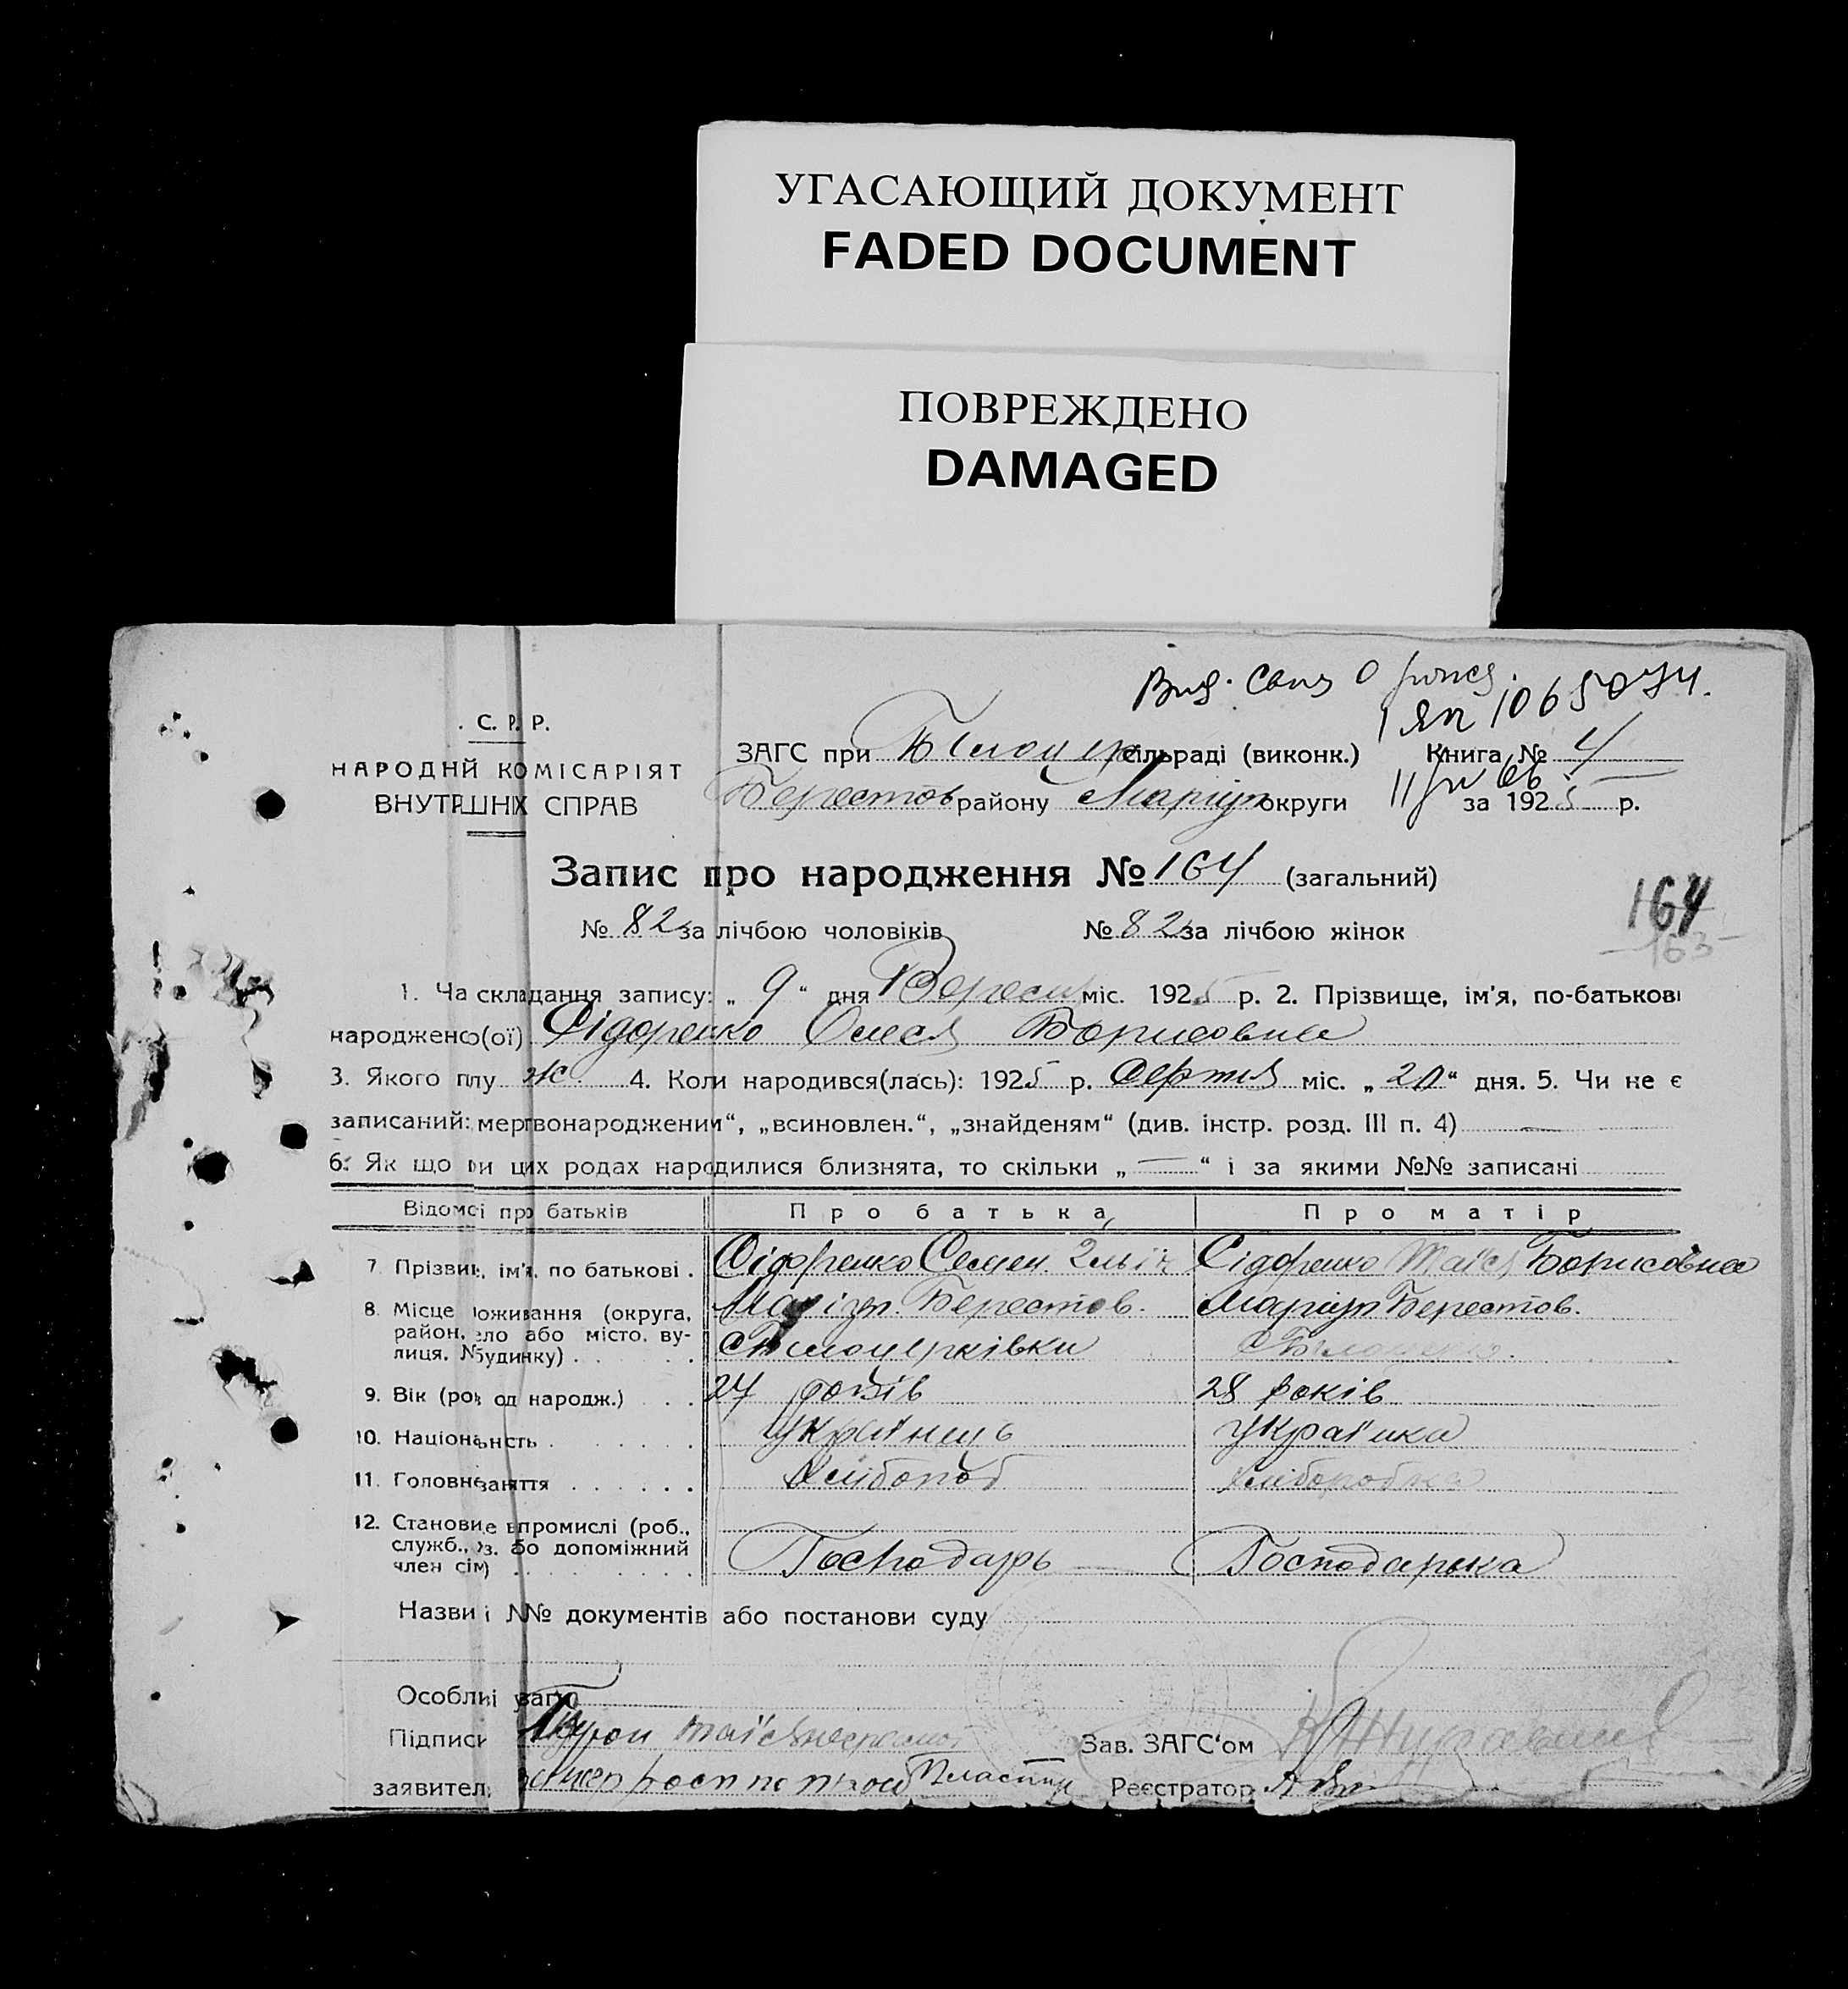 УГАСАЮЩИЙ ДОКУМЕНТ
FADED DOCUMENT
ПОВРЕЖДЕНО
DAMAGED
. С. Р. Р.
НАРОДНИЙ КОМІСАРІЯТ
ВНУТРІШНІХ СПРАВ
1 ЯП 1065074.
ЗАГС при Білоцерк сільраді (виконк.) Книга № 4
Берестов району Маріуп округи за 1925 р.
Запис про народження № 164 (загальний)
164
163
№ 82 за лічбою чоловіків № 82 за лічбою жінок
1. Час складання запису: „ 9 “ дня Вересн міс. 1925 р. 2. Прізвище, ім'я, по-батькові
народженого(ої) Сідоренко Олеся Борисовна
3. Якого полу ж. 4. Коли народився(лась): 1925 р. Серпня міс. „ 20 “ дня. 5. Чи не є
записаний: мертвонародженим“, „всиновлен.“, „знайденям“ (див. інстр. розд. III п. 4) —
6. Як що при цих родах народилися близнята, то скільки „ — “ і за якими №№ записані
Відомості про батьків Про батька Про матір
7. Прізвище, ім'я, по батькові . Сідоренко Семен Ільїч Сідоренко Таїся Борисовна
8. Місце проживання (округа, Маріуп. Берестов. Маріуп Берестов.
район, село або місто, ву-
лиця, № будинку) . . . . с Білоцерківки с Білоцерк.
9. Вік (років од народж.) . . . 27 років 28 років
10. Національність . . . . . . українець українка
11. Головне заняття . . . . . . Хлібороб хліборобка
12. Становище в промислі (роб.,
служб., хоз. або допоміжний Господарь Господарька
член сім'ї) . . . . . . . .
Назви і №№ документів або постанови суду
Особливі уваги
Підписи Зав. ЗАГС‘ом
заявителів Реєстратор